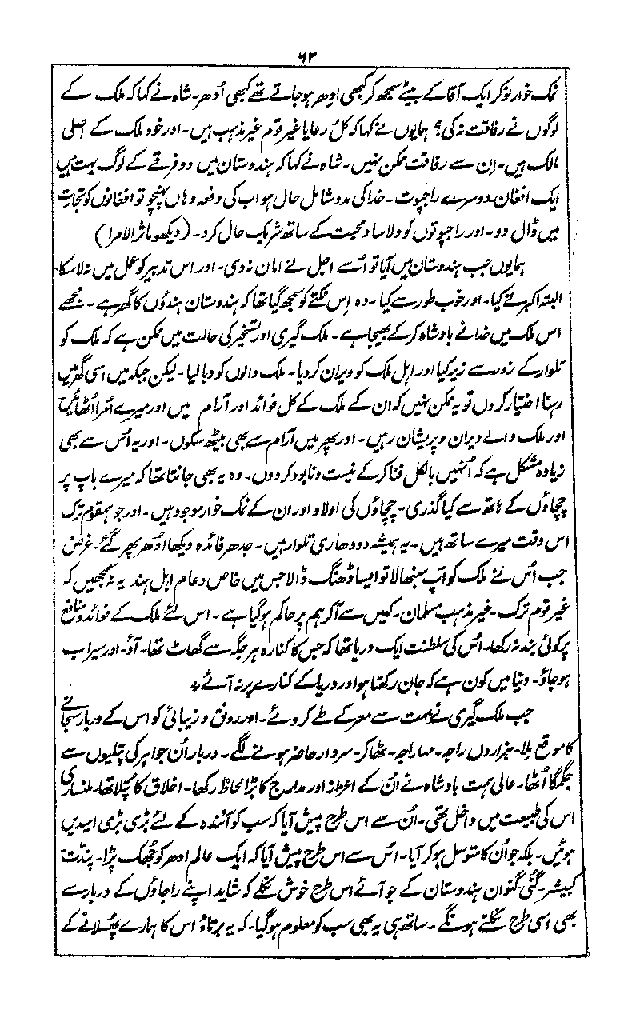 ۶۳
نمک خوار نوکر ایک آقا کے بیٹے سمجھ کر کبھی ادھر ہو جاتے تھے کبھی اُدھر۔ شاہ نے کہا کہ ملک کے
لوگوں نے رفاقت نہ کی؟ ہمایوں نے کہا کہ کل رعایا غیر قوم غیر مذہب ہیں۔ اور خود ملک کے اصلی
مالک ہیں۔ اِن سے رفاقت ممکن نہیں۔ شاہ نے کہا کہ ہندوستان میں دو فرقے کے لوگ بہت ہیں
ایک افغان دوسرے راجپوت۔ خدا کی مدد شامل حال ہو اب کی دفعہ وہاں پہنچو تو افغانوں کو تجارت
میں ڈال دو۔ اور راجپوتوں کو دلاسا و محبت کے ساتھ شریک حال کرو۔ (دیکھو مآثر الامرا)
ہمایوں جب ہندوستان میں آیا تو اُسے اجل نے امان نہ دی۔ اور اس تدبیر کو عمل میں نہ لا سکا
البتہ اکبر نے کیا۔ اور خوب طور سے کیا۔ وہ اس نکتے کو سمجھ گیا تھا کہ ہندوستان ہندؤں کا گھر ہے۔ مجھے
اس ملک میں خدا نے بادشاہ کر کے بھیجا ہے۔ ملک گیری اور تسخیر کی حالت میں ممکن ہے کہ ملک کو
تلوار کے زور سے زیر کیا اور اہل ملک کو ویران کر دیا۔ ملک والوں کو دبا لیا۔ لیکن جبکہ میں اسی گھر میں
رہنا اختیار کروں تو یہ ممکن نہیں کہ ان کے ملک کے کل فوائد اور آرام میں اور میرے اُمرا اُٹھائیں
اور ملک والے ویران و پریشان رہیں۔ اور پھر میں آرام سے بھی بیٹھ سکوں۔ اور یہ اُس سے بھی
زیادہ مشکل ہے کہ اُنہیں بالکل فنا کر کے نیست و نابود کر دوں۔ وہ یہ بھی جانتا تھا کہ میرے باپ پر
چچاؤں کے ہاتھ سے کیا گذری۔ چچاؤں کی اولاد اور ان کے نمک خوار موجود ہیں۔ اور جو ہمقوم ترک
اس وقت میرے ساتھ ہیں۔ یہ ہمیشہ دو دھاری تلوار ہیں۔ جدھر فائدہ دیکھا اُدھر پھر گئے۔ غرض
جب اُس نے ملک کو آپ سنبھالا تو ایسا ڈھنگ ڈالا جس میں خاص و عام اہل ہند یہ نہ سمجھیں کہ
غیر قوم ترک۔ غیر مذہب مسلمان۔ کہیں سے آ کر ہم پر حاکم ہو گیا ہے۔ اس لئے ملک کے فوائد و منافع
پر کوئی بند نہ رکھا۔ اُس کی سلطنت ایک دریا تھا کہ جس کا کنارہ ہر جگہ سے گھاٹ تھا۔ آؤ۔ اور سیراب
ہو جاؤ۔ دنیا میں کون ہے کہ جان رکھتا ہو اور دریا کے کنارے پر نہ آئے ؞
جب ملک گیری نے بہت سے معرکے طے کر دئے۔ اور رونق و زیبائی کو اس کے دربار سجانے
کا موقع ملا۔ ہزاروں راجہ۔ مہاراجہ۔ ٹھاکر۔ سردار حاضر ہونے لگے۔ دربار اُن جواہر کی پتلیوں سے
جگمگا اُٹھا۔ عالی ہمت بادشاہ نے اُن کے اعزاز اور مدارج کا بڑا لحاظ رکھا۔ اخلاق کا پتلا تھا۔ ملنساری
اس کی طبیعت میں داخل تھی۔ اُن سے اس طرح پیش آیا کہ سب کو آئندہ کے لئے بڑی بڑی امیدیں
ہوئیں۔ بلکہ جو اُن کا متوسل ہو کر آیا۔ اُس سے اس طرح پیش آیا کہ ایک عالم ادھر کو جھک پڑا۔ پنڈت
کبیشر۔ گنی گنوان ہندوستان کے جو آئے اس طرح خوش نکلے کہ شاید اپنے راجاؤں کے دربار سے
بھی اسی طرح نکلتے ہونگے۔ ساتھ ہی یہ بھی سب کو معلوم ہو گیا۔ کہ یہ برتاؤ اس کا ہمارے پھسلانے کے